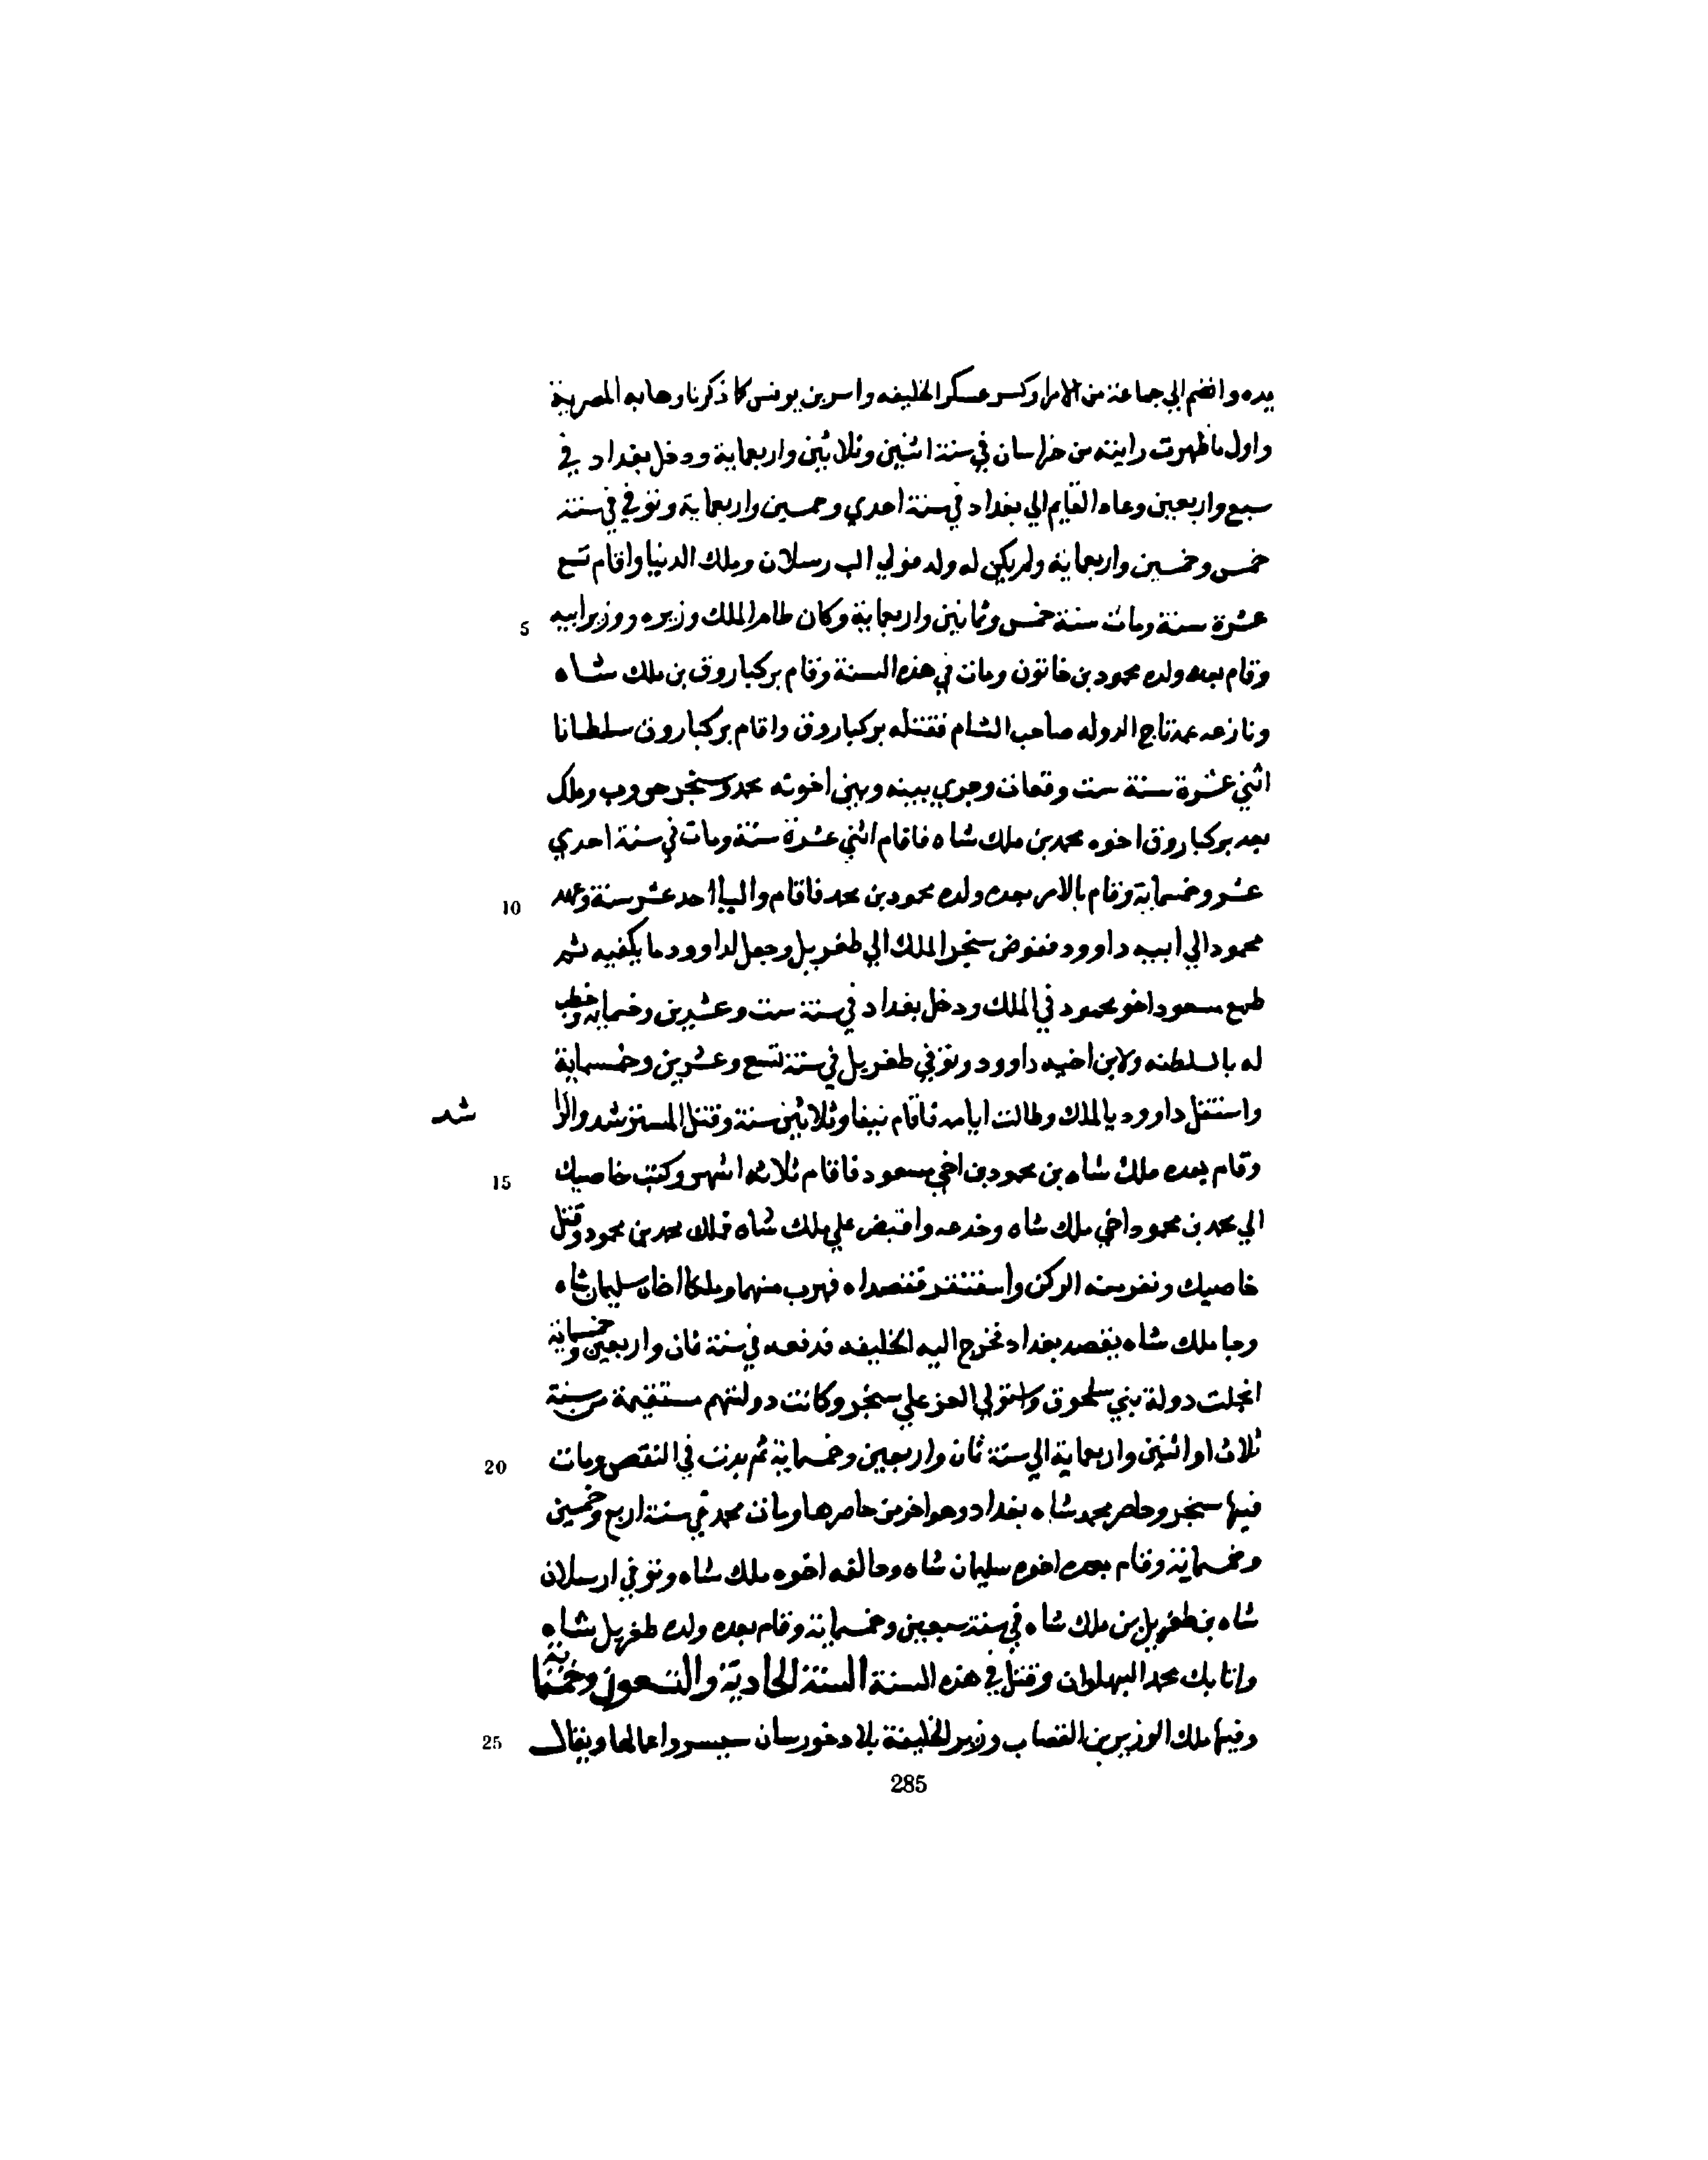 يده وانضم الي جماعة من الامرا وكسر عسكر الخليفه واسر بن يونس كما ذكرنا وهابه المصريه
واول ما ظهرت رايته من خراسان في سنة اثنين وثلاثين واربعماية ودخل بغداد في
سبع واربعين وعاد القايم الي بغداد في سنة احدي وخمسين واربعماية وتوفي في سنة
خمس وخمسين واربعماية ولم يكن له ولد فولي الب رسلان وملك الدنيا واقام تسع
5 عشرة سنة ومات سنة خمس وثمانين واربعماية وكان طام الملك وزيره ووزير ابيه
وقام بعده ولده محمود بن خاتون ومات في هذه السنة وقام بركياروق بن ملك شاه
ونازعه عمه تاج الدوله صاحب الشام فقتله بركياروق واقام بركياروق سلطانا
اثني عشرة سنة ست وقعات وجري بينه وبين اخوته محمد وسنجر حروب وملك
بعد بركياروق اخوه محمد بن ملك شاه فاقام اثني عشرة سنة ومات في سنة احدي
10 عشر وخمسماية وقام بالامر بعده ولده محمود بن محمد فاقام واليا احد عشر سنة وعهد
محمود الي ابيه داوود ففوض سنجر الملك الي طغريل وجعل لداوود ما يكفيه ثم
طمع مسعود اخو محمود في الملك ودخل بغداد في سنة ست وعشرين وخمسمايه وخطب
له بالسلطنه ولابن اخيه داوود وتوفي طغريل في سنة تسع وعشرين وخمسماية
واستقل داوود بالملك وطالت ايامه فاقام نيفا وثلاثين سنة وقتل المسترشد والرا شد
15 وقام بعده ملك شاه بن محمود بن اخي مسعود فاقام ثلاثه اشهر وكتب خاصبك
الي محمد بن محمود اخي ملك شاه وخدعه واقبض علي ملك شاه فملك محمد بن محمود وقتل
خاصبك ونفر منه الركن فقصداه فهرب منهما وملكا اخاه سليمان شاه
وجا ملك شاه يقصد بغداد فخرج اليه الخليفه فدفعه في سنة ثمان واربعين وخمسماية
انحلت دولة بني سلجوق واستولي الغز علي سنجر وكانت دولتهم مستقيمة من سنة
20 ثلاث او اثنين واربعماية الي سنة ثمان واربعين وخمسماية ثم بدت في النقص ومات
فيها سنجر وحاصر محمد شاه بغداد وهو اخر من حاصرها ومات محمد في سنة اربع وخمسين
وخمسماية وقام بعده اخوه سليمان شاه وخالفه اخوه ملك شاه وتوفي ارسلان
شاه بن طغريل بن ملك شاه في سنة سبعين وخمسماية وقام بعده ولده طغريل شاه
واتابك محمد البهلوان وقتل في هذه السنة السنة الحادية والتسعون وخمسماية
25 وفيها ملك الوزير بن القصاب وزير الخليفة بلاد خورسان واعمالها ويقال
285